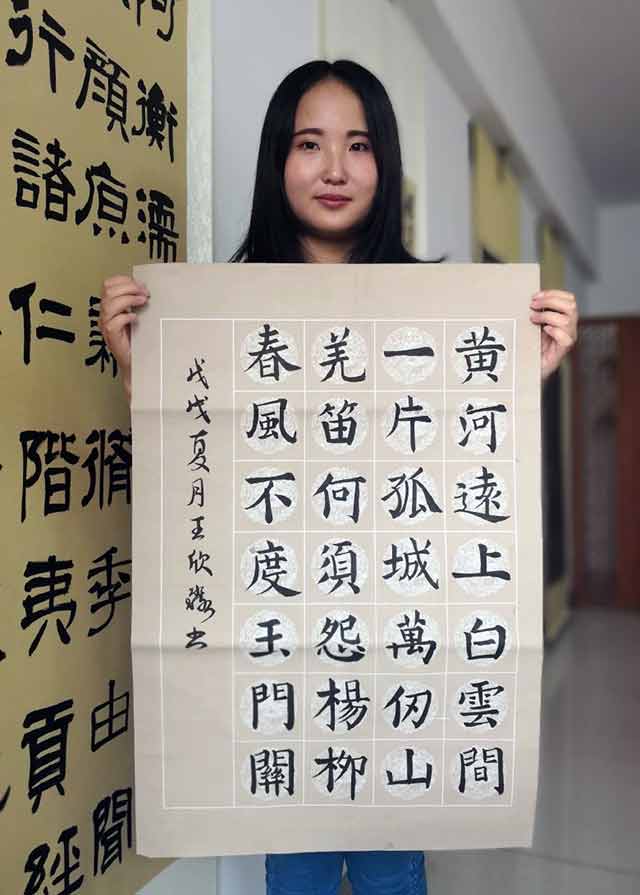 黄河遠上白雲間
一片孤城萬仞山
羌笛何須怨楊柳
春風不度玉門關
戊戌夏月王欣书
衡濡
顏脩季由聞
行諸仁階夷貢經